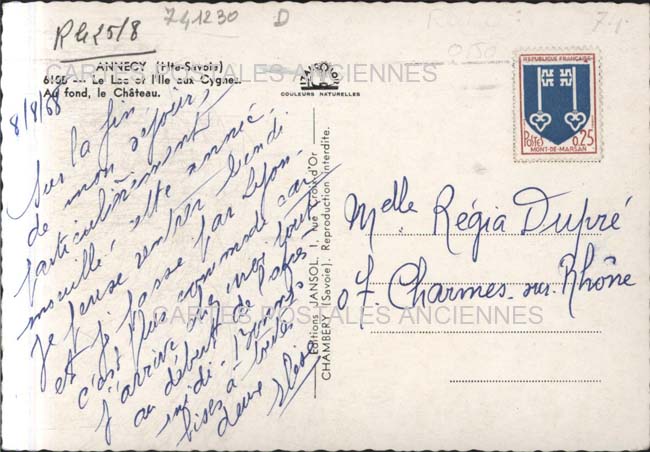 RG 25/8
741230 D
ANNECY (Hte-Savoie)
CARTES POSTALES ANCIENNES
6165 — Le Lac et l'Ile aux Cygnes.
Au fond, le Château.
COULEURS NATURELLES
RÉPUBLIQUE FRANÇAISE
Postes 0,25
MONT-DE-MARSAN
8/8/68
Sur la fin
de mon séjour,
particulièrement
mouillé, cette année.
Je pense rentrer lundi
et je passe par Lyon.
c'est plus commode car
j'arrive chez moi tout
au début de l'après
midi. Bonnes
bises à toutes
deux
Editions JANSOL, 1, rue Croix d'Or
CHAMBERY (Savoie). Reproduction interdite.
Melle Régia Dupré
07. Charmes-sur-Rhône
CARTES POSTALES ANCIENNES